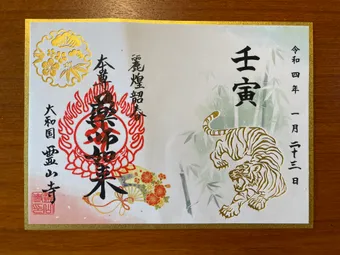 令和四年 一月二十三日
壬寅
本尊
薬師如来
大和国 霊山寺